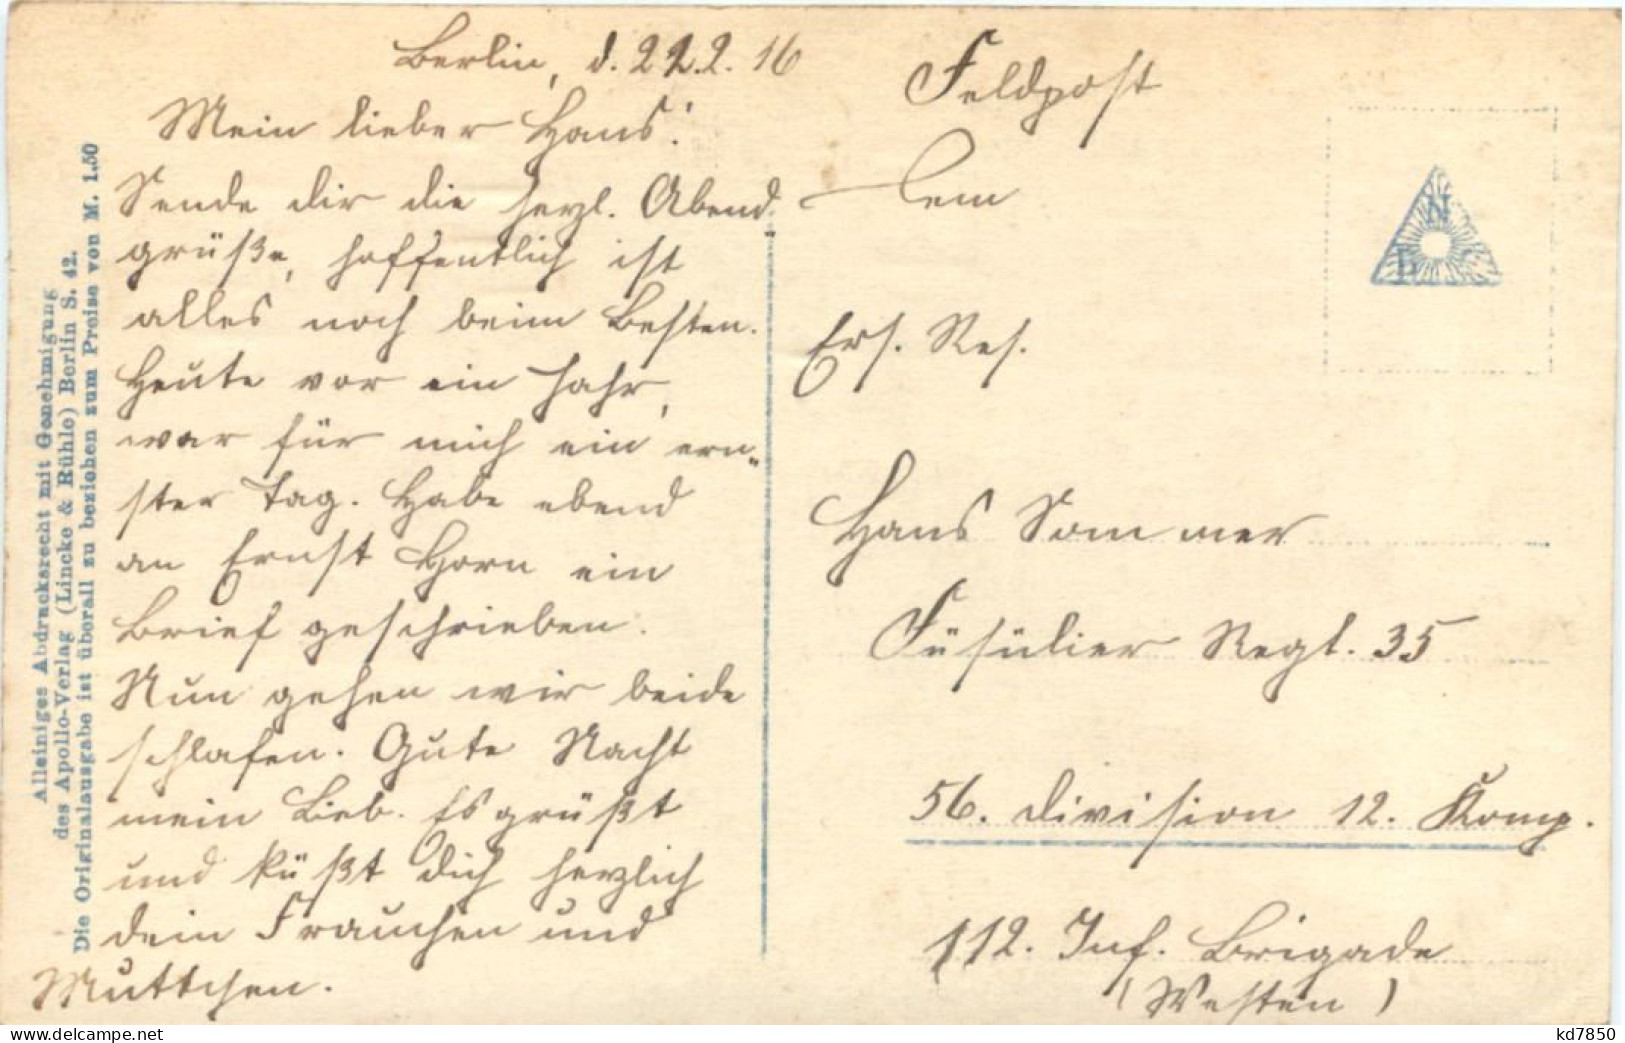 Berlin, d. 22.2.16
Mein lieber Hans!
Sende dir die herzl. Abend-
grüße, hoffentlich ist
alles noch beim Besten.
Heute vor ein Jahr,
war für mich ein ern-
ster Tag. Habe ebend
an Ernst Horn ein
Brief geschrieben.
Nun gehen wir beide
schlafen. Gute Nacht
mein Lieb. Es grüßt
und küßt dich herzlich
dein Frauchen und
Muttchen.
Alleiniges Abdrucksrecht mit Genehmigung
des Apollo-Verlag (Lincke & Rühle) Berlin S. 42.
Die Originalausgabe ist überall zu beziehen zum Preise von M. 1.50
Feldpost
Ers. Res.
Hans Sommer
Füsilier Regt. 35
56. Division 12. Komp.
112. Inf. Brigade
(Westen)
N
kd7850